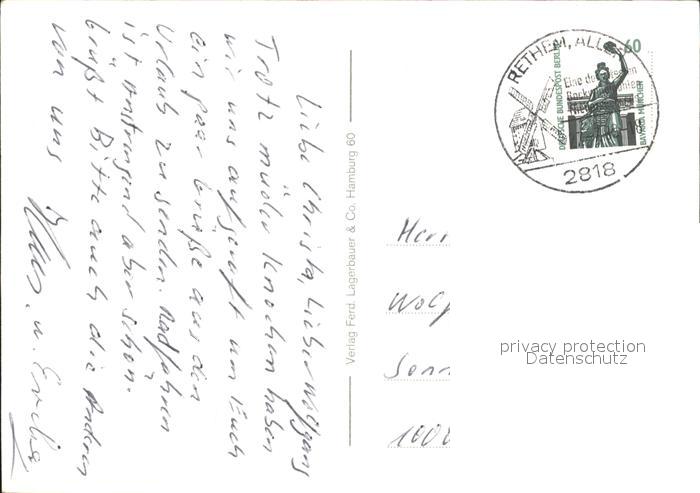 Liebe Christa, Lieber Wolfgang
Trotz müder Knochen haben
wir uns aufgerafft um Euch
ein paar Grüße aus dem
Urlaub zu senden. Radfahren
ist anstrengend aber schön.
Grüßt Bitte auch die Anderen
von uns
u.
Verlag Ferd. Lagerbauer & Co. Hamburg 60
RETHEM, ALLER
2818
60
DEUTSCHE BUNDESPOST BERLIN
BAVARIA MÜNCHEN
Eine der
Herr
Wolf
Sonn
1000
privacy protection
Datenschutz